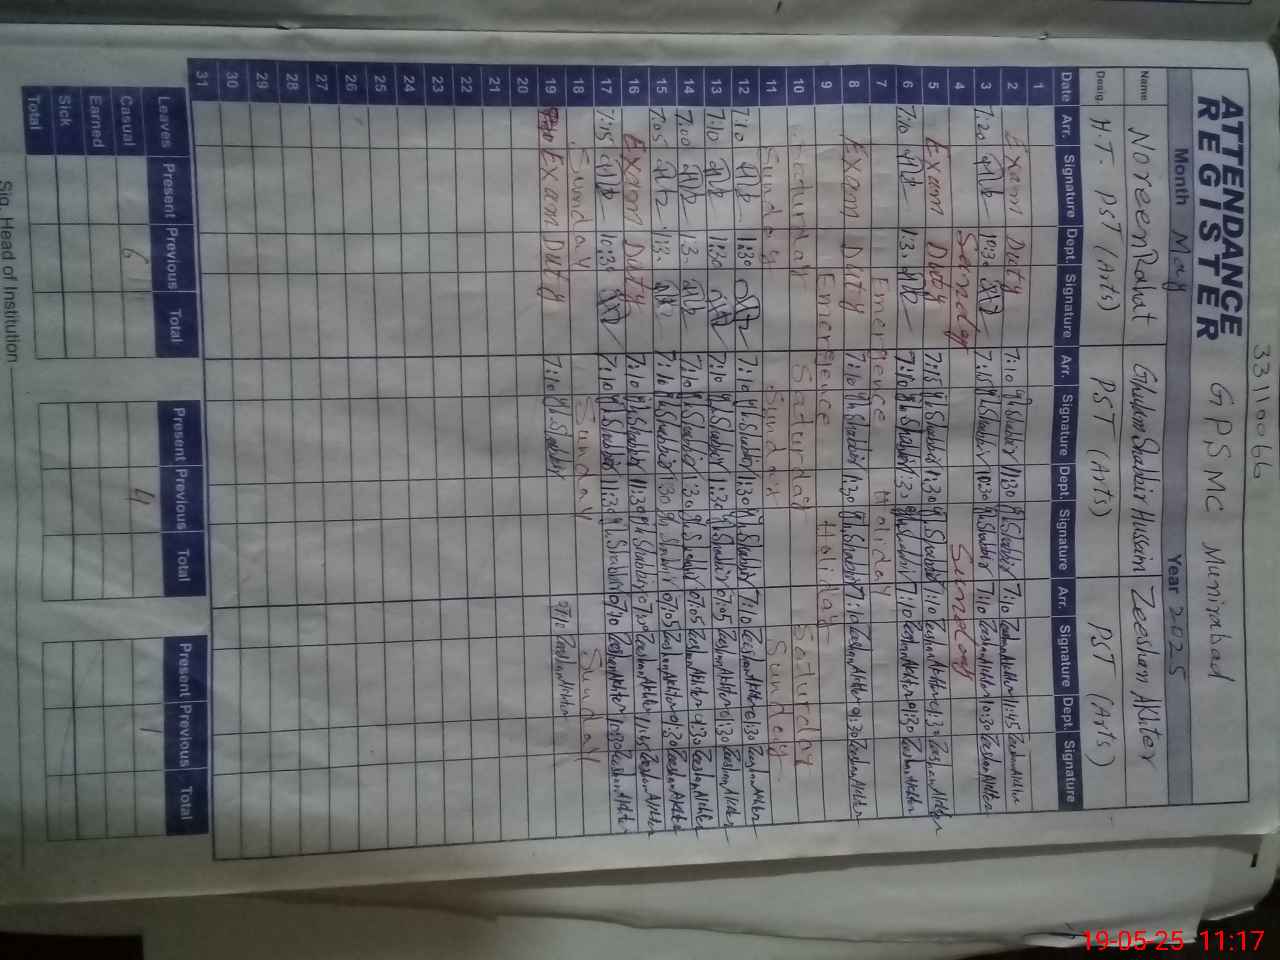 33110066
ATTENDANCE REGISTER GPSMC Munirabad
Month May Year 2025
Name Noreen Rahat Ghulam Shabbir Hussain Zeesham Akhter
Desig. H.T. PST (Arts) PST (Arts) PST (Arts)
Date Arr. Signature Dept. Signature Arr. Signature Dept. Signature Arr. Signature Dept. Signature
1
2 Exam Duty 7:10 G. Shabbir 11:30 G. Shabbir 7:10 Zeesham Akhter 11:45 Zeesham Akhter
3 7:20 10:30 7:15 G. Shabbir 10:30 G. Shabbir 7:10 Zeesham Akhter 10:30 Zeesham Akhter
4 Sunday Sunday
5 Exam Duty 7:15 G. Shabbir 1:30 G. Shabbir 7:10 Zeesham Akhter 1:30 Zeesham Akhter
6 7:10 1:30 7:10 G. Shabbir 1:30 G. Shabbir 7:10 Zeesham Akhter 1:30 Zeesham Akhter
7 Emergence Holiday
8 Exam Duty 7:10 G. Shabbir 1:30 G. Shabbir 7:10 Zeesham Akhter 1:30 Zeesham Akhter
9 Emergence Holiday
10 Saturday Saturday Saturday
11 Sunday Sunday Sunday
12 7:10 1:30 7:10 G. Shabbir 1:30 G. Shabbir 7:10 Zeesham Akhter 1:30 Zeesham Akhter
13 7:10 1:30 7:10 G. Shabbir 1:30 G. Shabbir 7:05 Zeesham Akhter 1:30 Zeesham Akhter
14 7:00 1:3. 7:10 G. Shabbir 1:30 G. Shabbir 7:05 Zeesham Akhter 1:30 Zeesham Akhter
15 7:05 1:3. 7:10 G. Shabbir 1:30 G. Shabbir 7:05 Zeesham Akhter 1:30 Zeesham Akhter
16 Exam Duty 7:10 G. Shabbir 11:30 G. Shabbir Zeesham Akhter 11:45 Zeesham Akhter
17 7:15 10:30 7:10 G. Shabbir 11:30 G. Shabbir 7:10 Zeesham Akhter 10:30 Zeesham Akhter
18 Sunday Sunday Sunday
19 Exam Duty 7:10 G. Shabbir 7:10 Zeesham Akhter
20
21
22
23
24
25
26
27
28
29
30
31
Leaves Present Previous Total Present Previous Total Present Previous Total
Casual 6 4 1
Earned
Sick
Total
Sig. Head of Institution
19-05-25 11:17